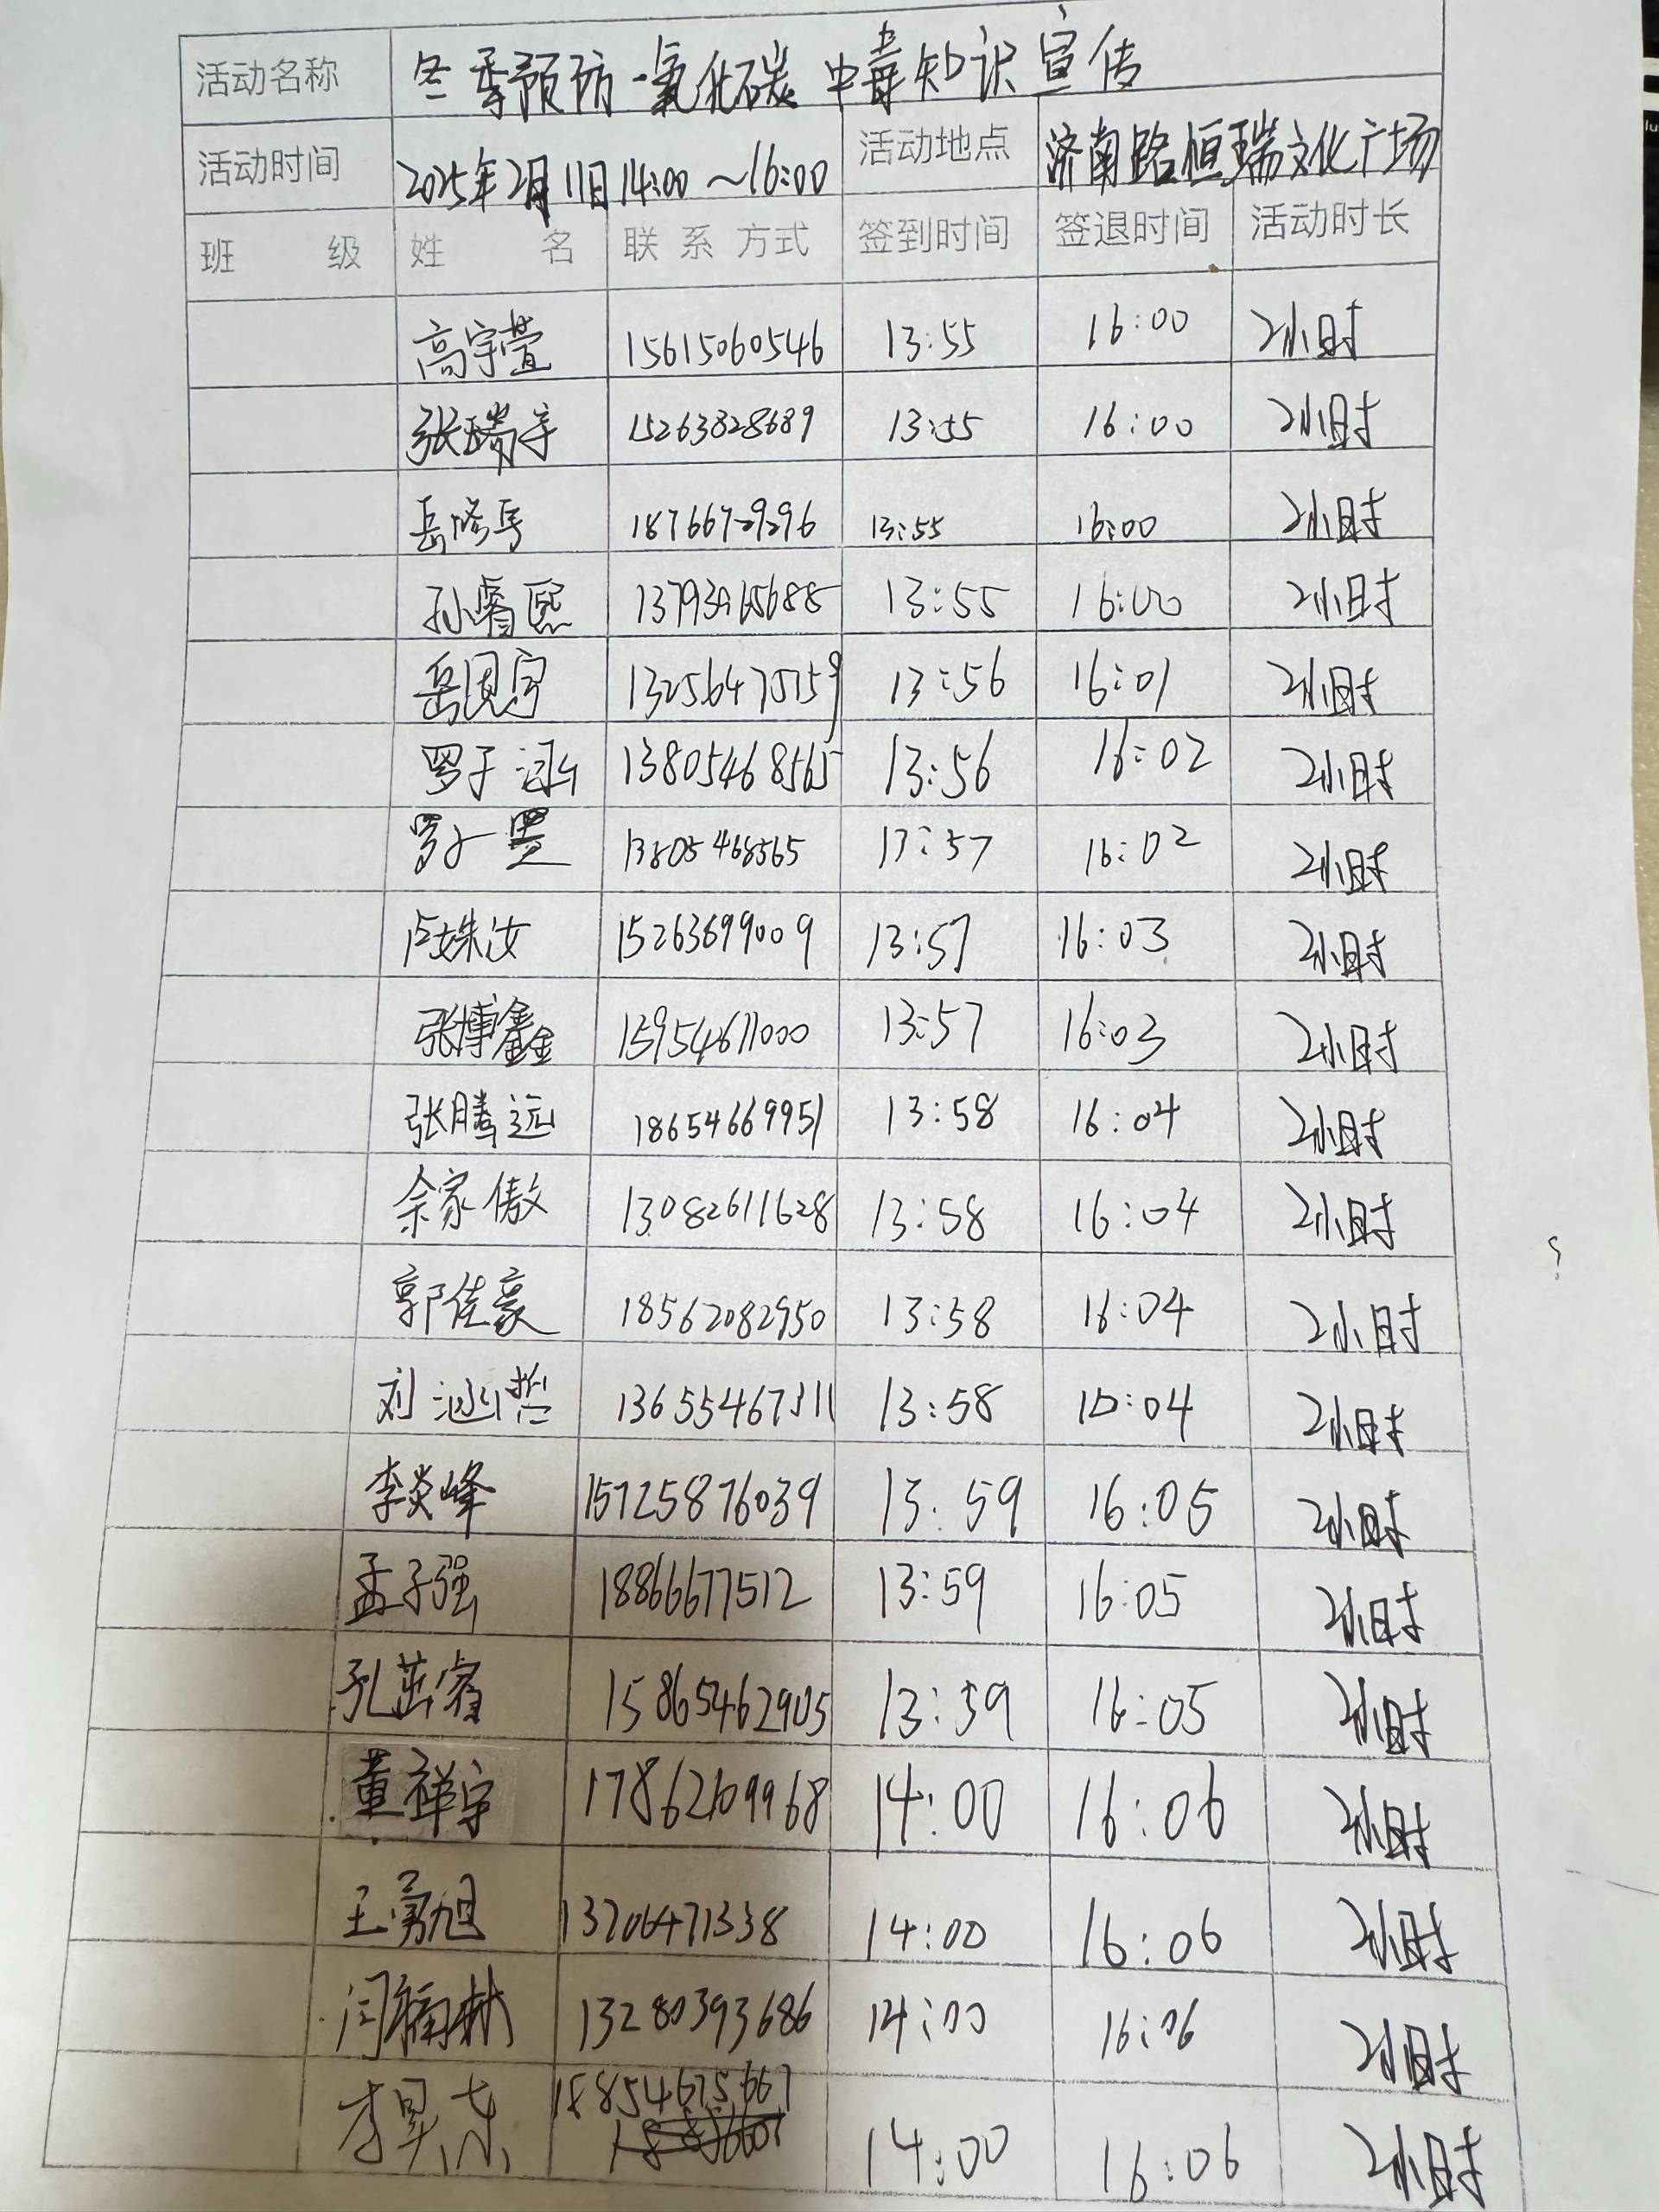 活动名称 冬季预防一氧化碳中毒知识宣传
活动时间 2025年2月11日14:00～16:00 活动地点 济南路恒瑞文化广场
班 级 姓 名 联系方式 签到时间 签退时间 活动时长
高宇萱 15615060546 13:55 16:00 2小时
张瑞宇 15263828689 13:55 16:00 2小时
岳修粤 18766729296 13:55 16:00 2小时
孙睿熙 13:55 16:00 2小时
岳恩宇 13256475159 13:56 16:01 2小时
罗子涵 13805468565 13:56 16:02 2小时
罗子墨 13805468565 13:57 16:02 2小时
卢姝汝 15263699009 13:57 16:03 2小时
张博鑫 15954671000 13:57 16:03 2小时
张腾远 18654669951 13:58 16:04 2小时
余家傲 13082611628 13:58 16:04 2小时
郭佳豪 18562082950 13:58 16:04 2小时
刘涵哲 13655467311 13:58 16:04 2小时
李炎峰 15725876039 13:59 16:05 2小时
孟子强 18866677512 13:59 16:05 2小时
孔茁睿 15865462905 13:59 16:05 2小时
董祥宇 17862109968 14:00 16:06 2小时
王勇旭 13706471338 14:00 16:06 2小时
闫楠林 13280393686 14:00 16:06 2小时
李昊东 18854675667 14:00 16:06 2小时